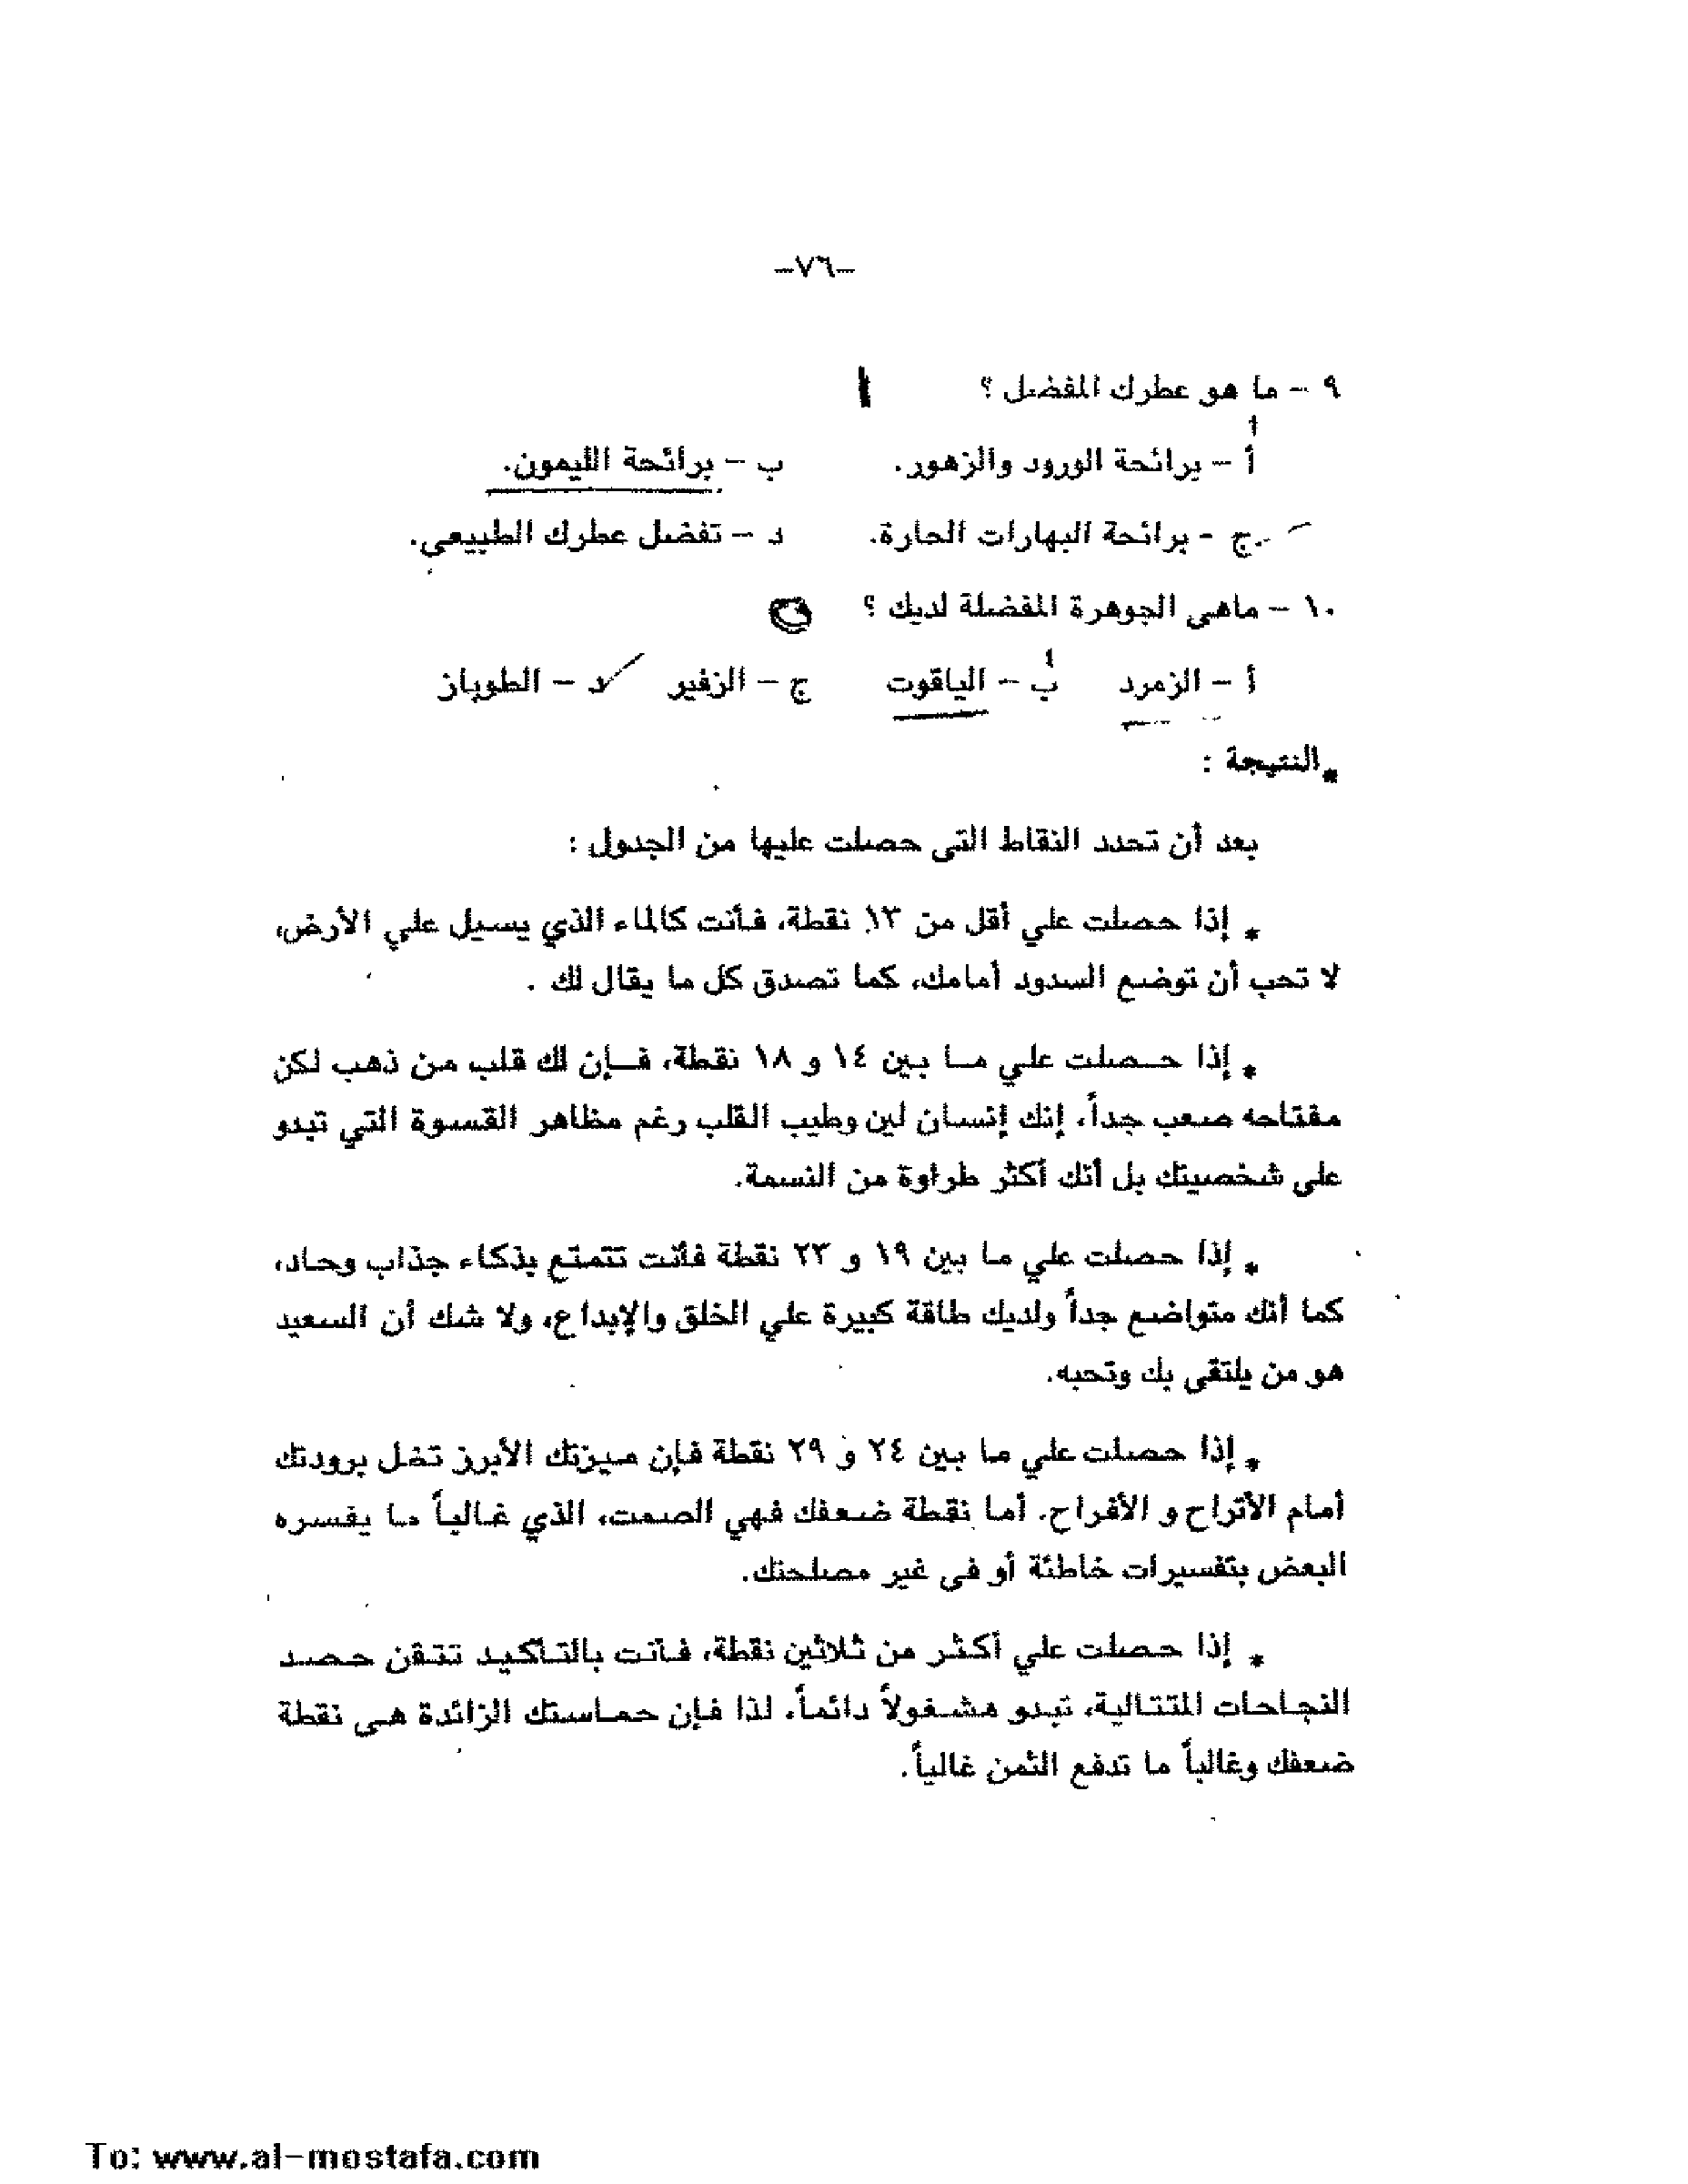 -٧٦-
٩ - ما هو عطرك المفضل ؟
أ - برائحة الورود والزهور. ب - برائحة الليمون.
ج - برائحة البهارات الحارة. د - تفضل عطرك الطبيعى.
١٠ - ماهى الجوهرة المفضلة لديك ؟
أ - الزمرد ب - الياقوت ج - الزفير د - الطوباز
* النتيجة :
بعد أن تحدد النقاط التى حصلت عليها من الجدول :
* إذا حصلت علي أقل من ١٣ نقطة، فأنت كالماء الذي يسيل علي الأرض،
لا تحب أن توضع السدود أمامك، كما تصدق كل ما يقال لك .
* إذا حصلت علي ما بين ١٤ و ١٨ نقطة، فإن لك قلب من ذهب لكن
مفتاحه صعب جداً، إنك إنسان لين وطيب القلب رغم مظاهر القسوة التي تبدو
على شخصيتك بل أنك أكثر طراوة من النسمة.
* إذا حصلت علي ما بين ١٩ و ٢٣ نقطة فأنت تتمتع بذكاء جذاب وحاد،
كما أنك متواضع جداً ولديك طاقة كبيرة علي الخلق والإبداع، ولا شك أن السعيد
هو من يلتقى بك وتحبه.
* إذا حصلت علي ما بين ٢٤ و ٢٩ نقطة فإن ميزتك الأبرز تخل برودتك
أمام الأتراح و الأفراح. أما نقطة ضعفك فهي الصمت، الذي غالباً ما يفسره
البعض بتفسيرات خاطئة أو فى غير مصلحتك.
* إذا حصلت علي أكثر من ثلاثين نقطة، فأنت بالتأكيد تتقن حصد
النجاحات المتتالية، تبدو مشغولاً دائماً. لذا فإن حماستك الزائدة هى نقطة
ضعفك وغالباً ما تدفع الثمن غالياً.
To: www.al-mostafa.com